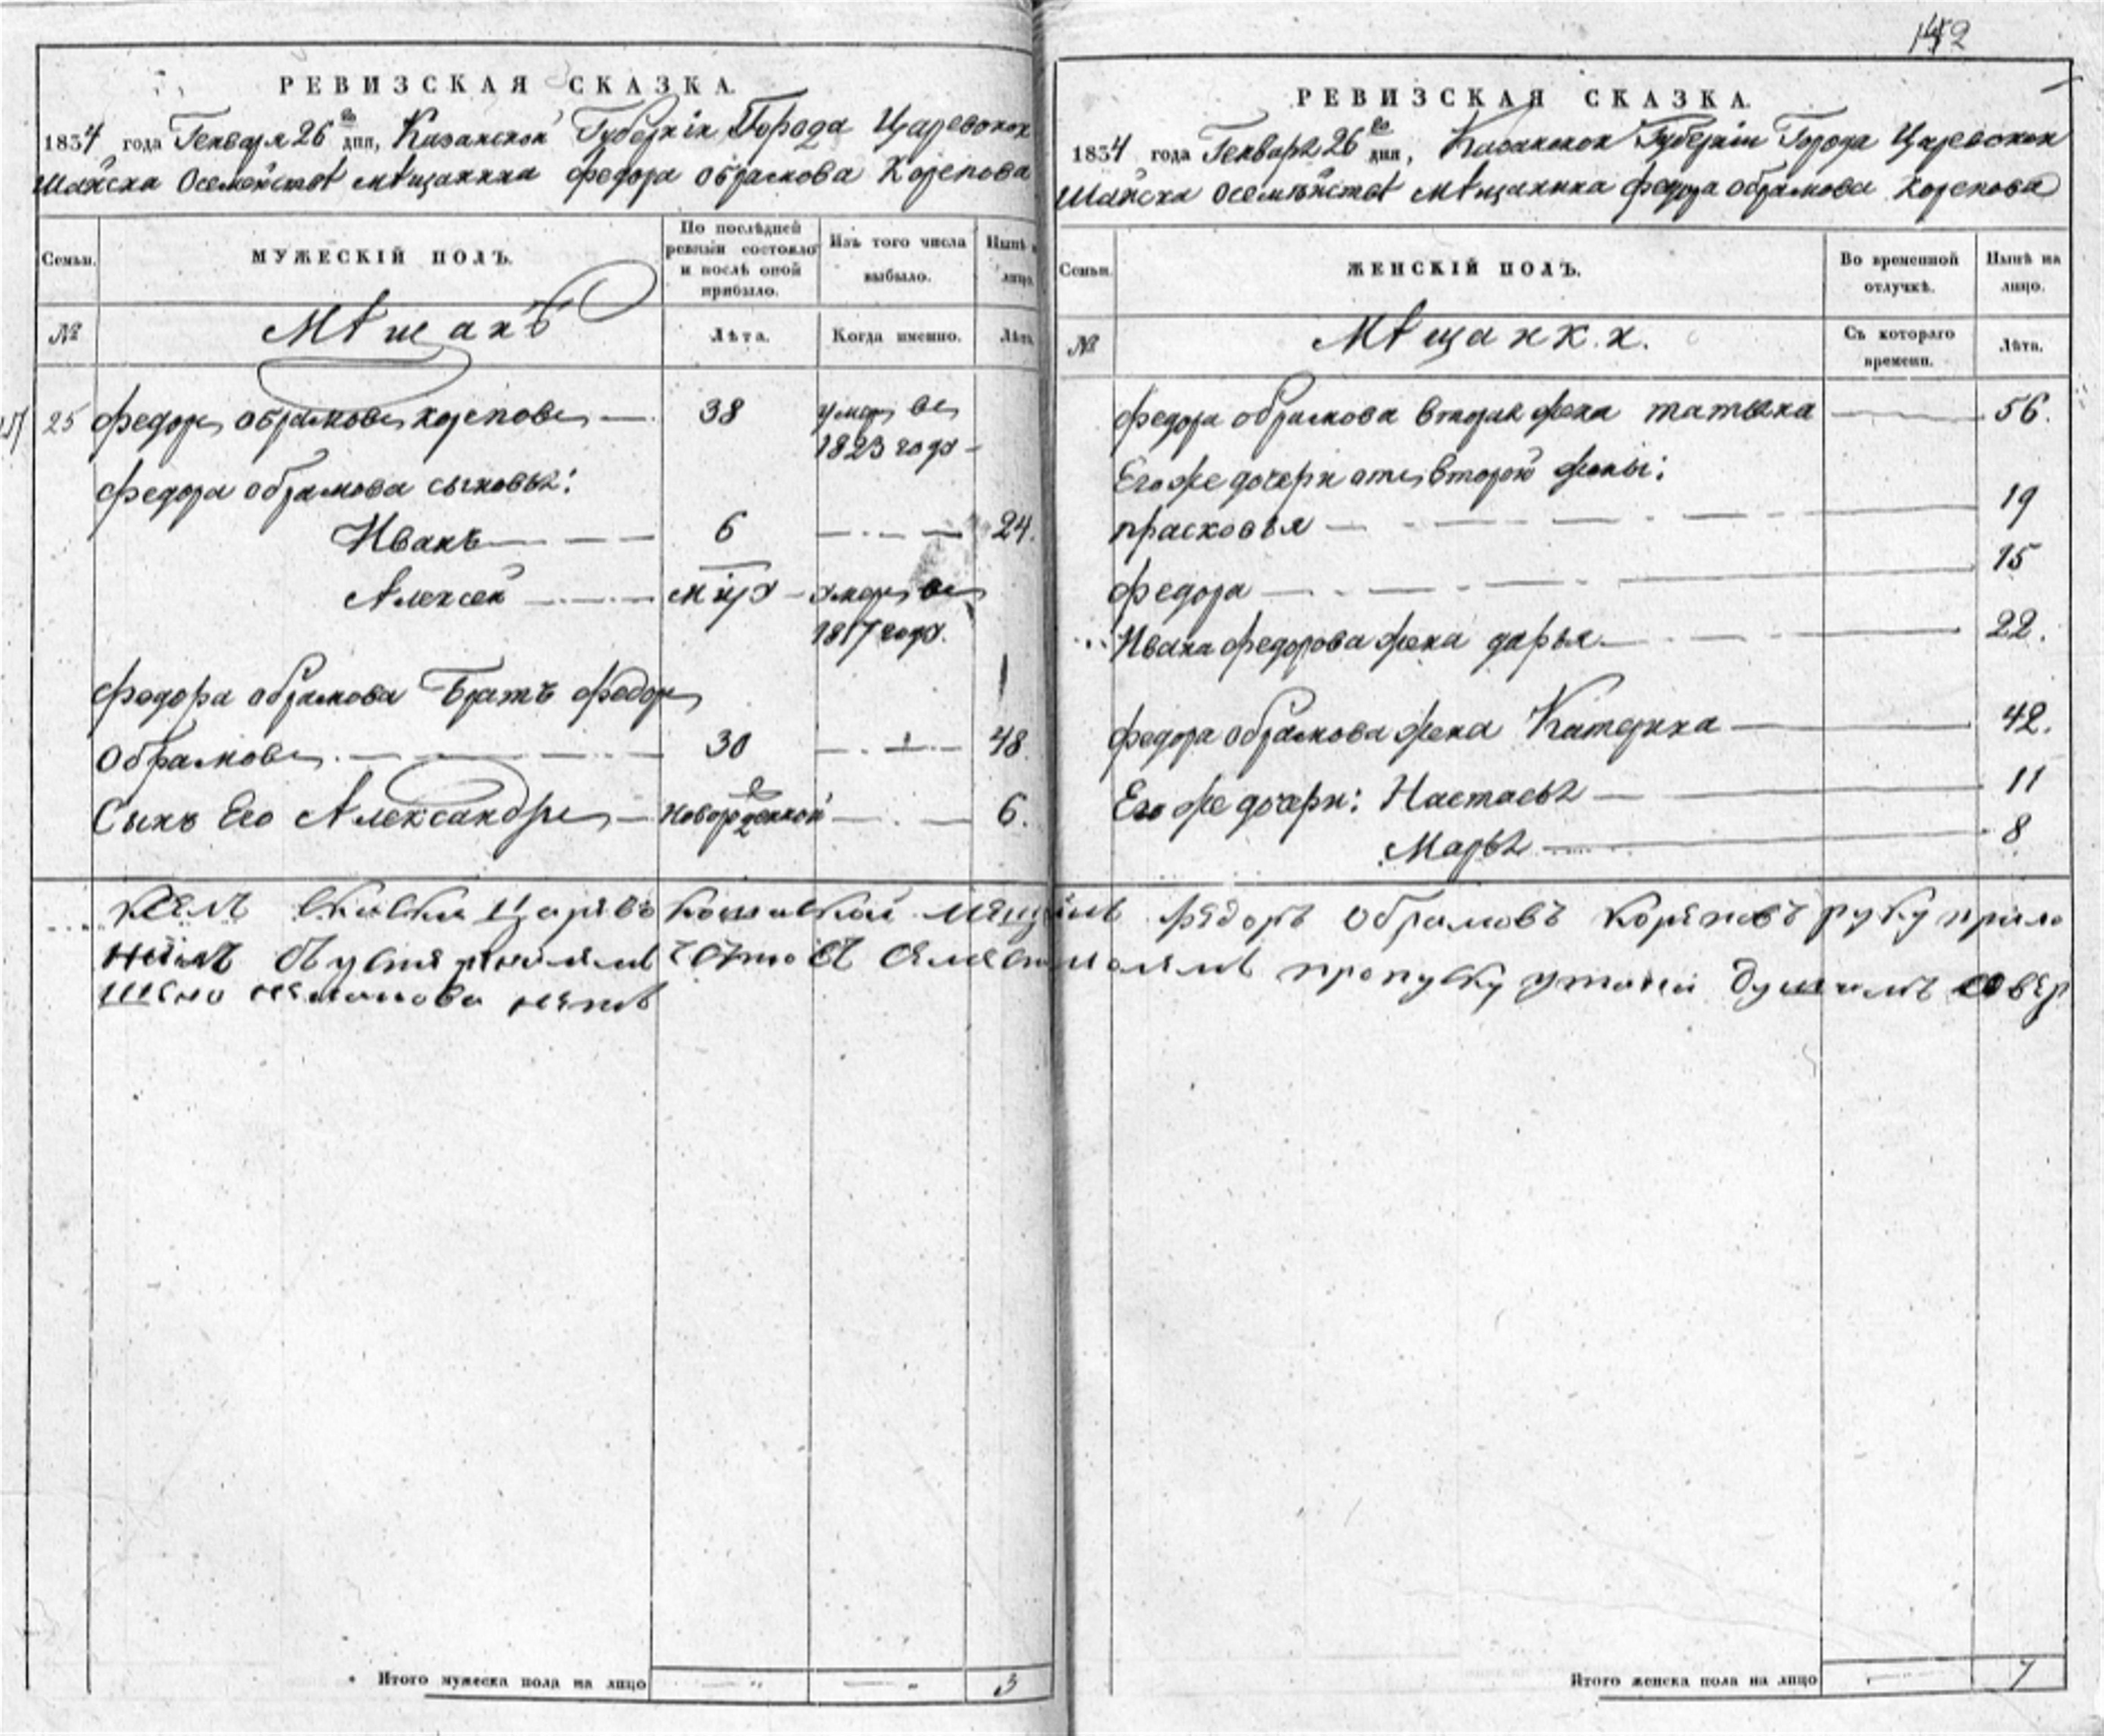 142
РЕВИЗСКАЯ СКАЗКА.
1834 года Генваря 26 го дня, Казанской Губернiи Города Царевокок
шайска Осемействѣ мѣщанина федора обрамова Корепова
Семьи.
МУЖЕСКIЙ ПОЛЪ.
По послѣдней ревизiи состояло и послѣ оной прибыло.
Изъ того числа выбыло.
Нынѣ лицо.
№
Мѣщанъ
Лѣта.
Когда именно.
Лѣта
25 федоръ обрамовъ кореповъ — 38 умеръ въ
1823 году -
федора обрамова сыновья:
Иванъ 6 24.
Алексей умеръ въ
1817 году.
федора обрамова Братъ федоръ
обрамовъ 30 48.
Сынъ Его Александръ — новорожденной 6.
Итого мужеска пола на лицо 3
РЕВИЗСКАЯ СКАЗКА.
1834 года Генваря 26 го дня, Казанской Губернiи Города Царевокок
шайска осемѣйствѣ мѣщанина федора обрамова корепова
Семьи.
ЖЕНСКIЙ ПОЛЪ.
Во временной отлучкѣ.
Нынѣ на лицо.
№
Мѣщанки.
Съ котораго времени.
Лѣта.
федора обрамова вторая жена татьяна 56.
Его же дочери отъ второй жены:
прасковья 19
федора 15
Ивана федорова жена дарья 22.
федора обрамова жена Катерина 42.
Его же дочери: Настасья 11
Марья 8
федоръ обрамовъ корѣповъ руку прило
Итого женска пола на лицо 7